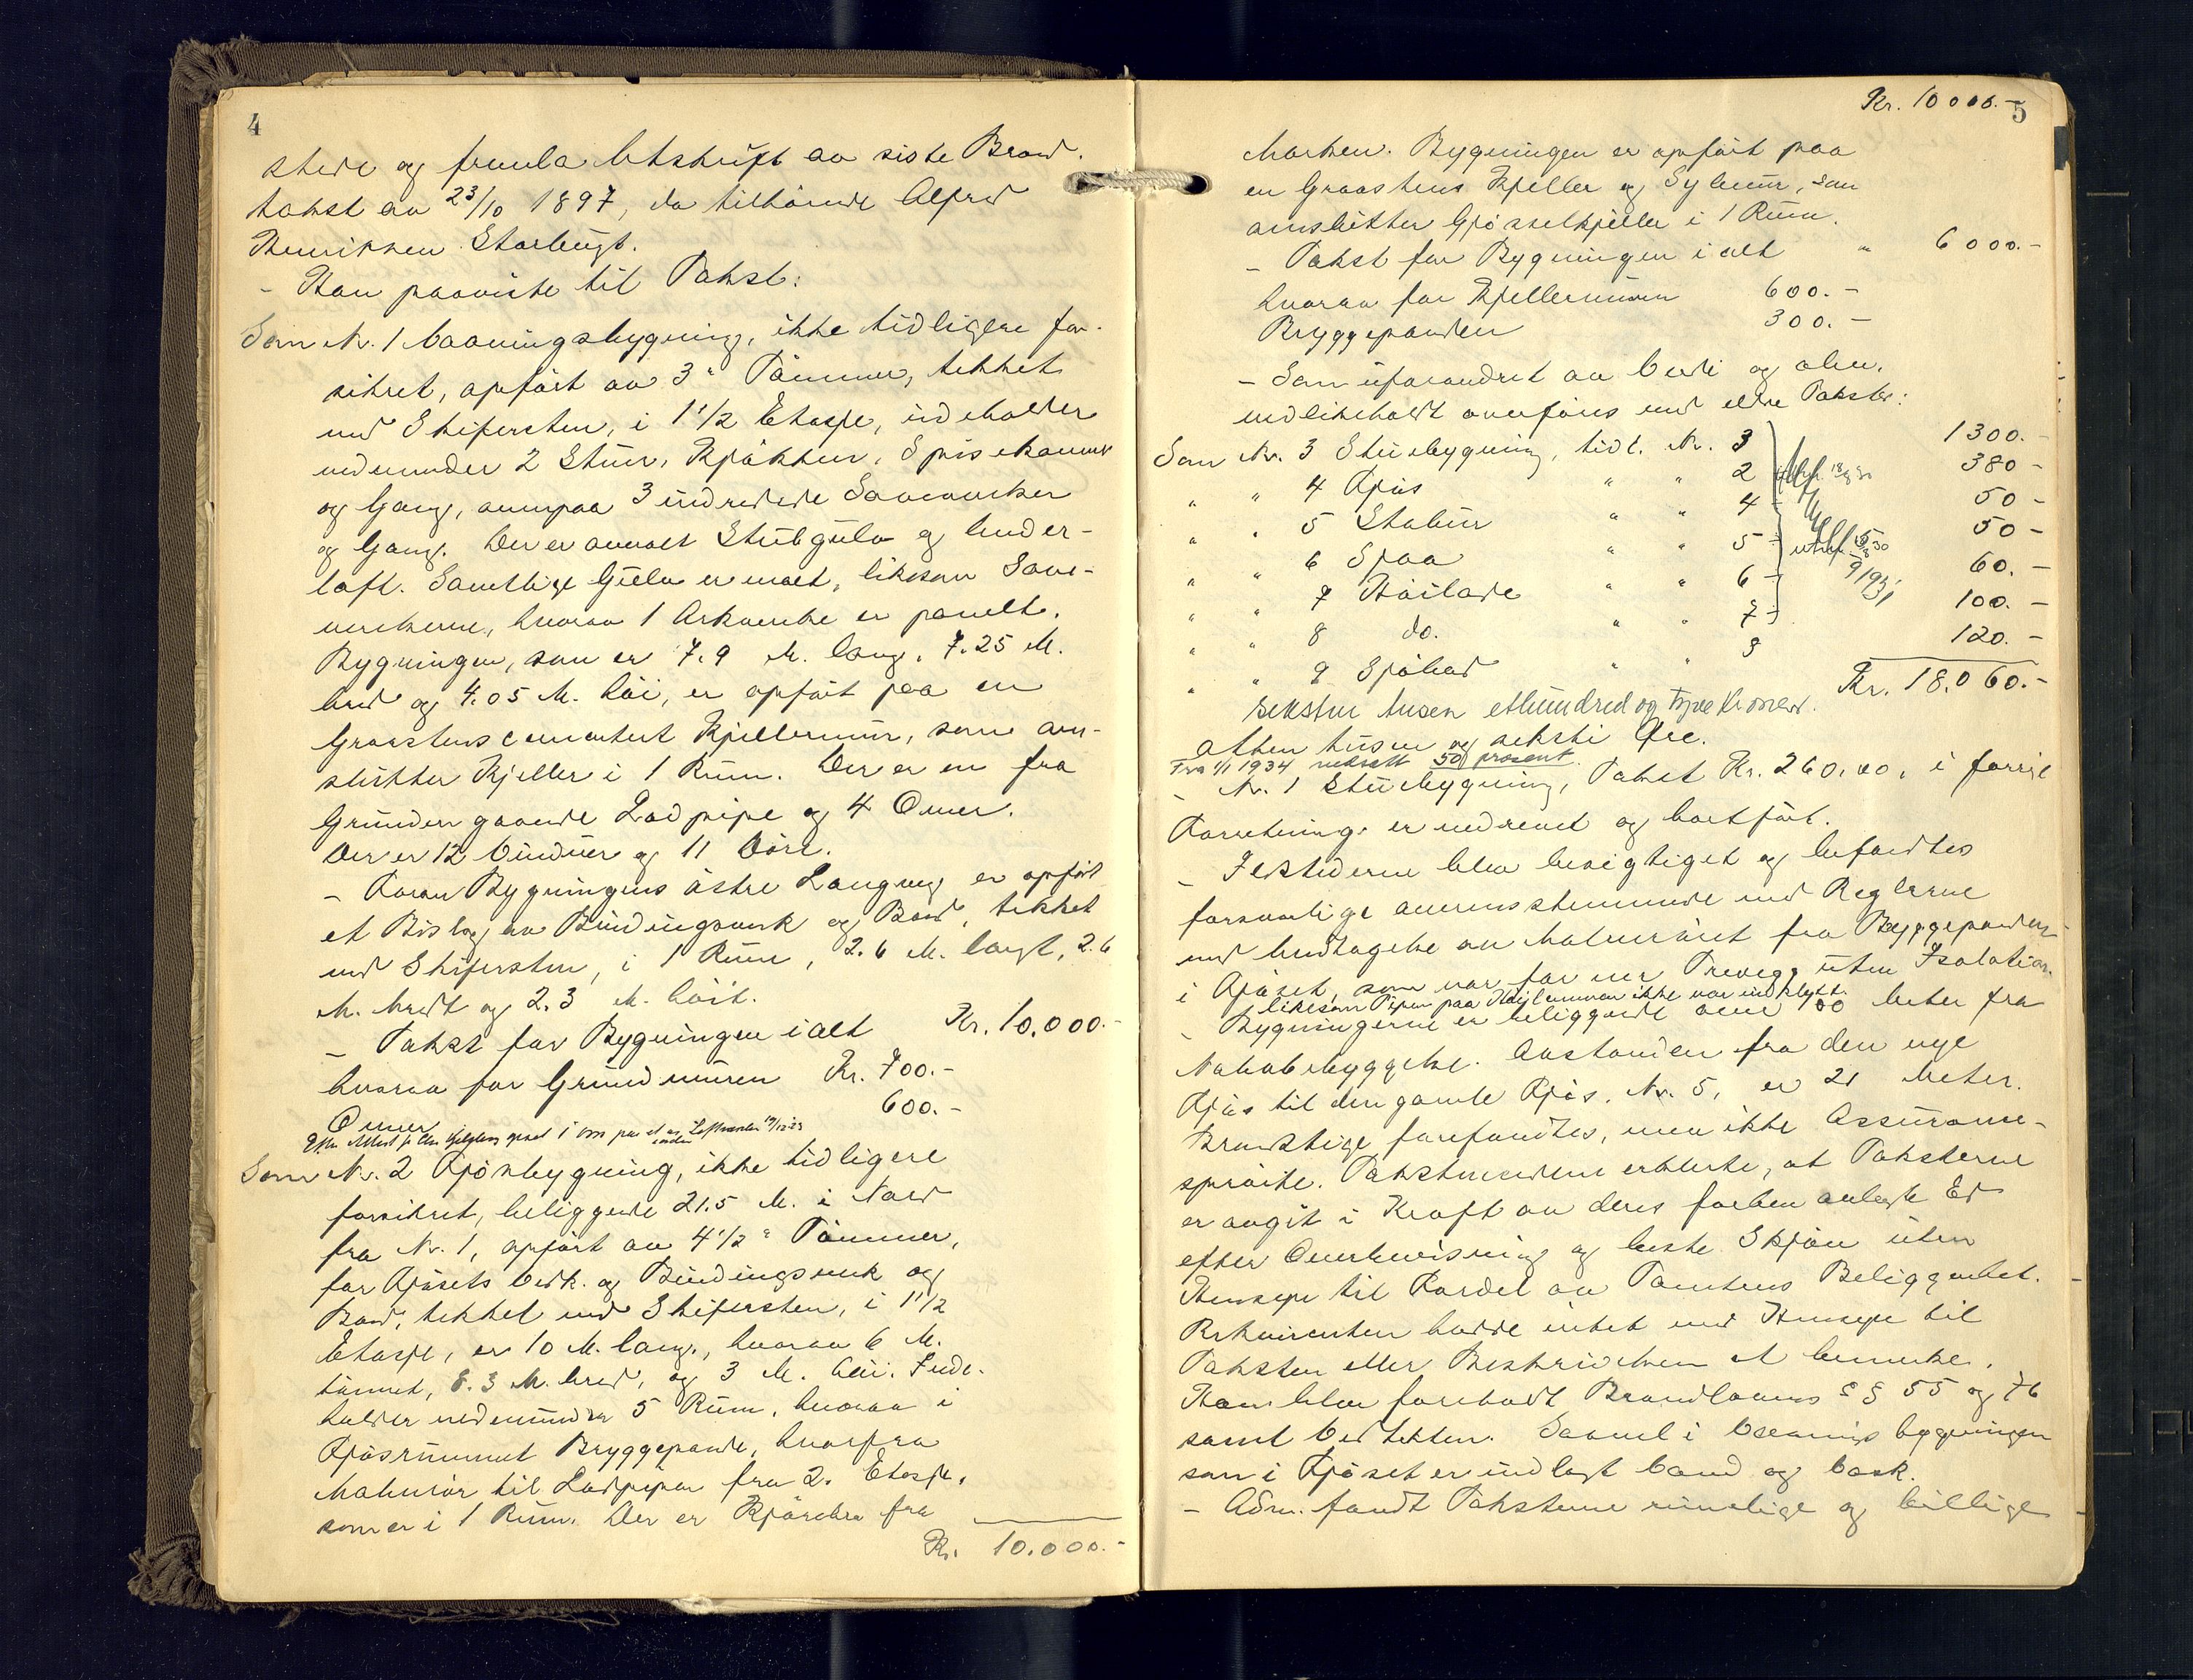 4
stede og fremla Utskrift av siste Brand-
takst av 23/10 1897, da tilhörende Alfred
Henriksen Storbugt.
- Han paaviste til Takst:
Som Nr. 1 Vaaningsbygning, ikke tidligere for-
sikret, opfört av 3" Tömmer, tekket
med Skifersten, i 1 1/2 Etasje, indeholder
nedenunder 2 Stuer, Kjökken, Spisekammer
og Gang, ovenpaa 3 indredede Soveværker
og Gang. Der er overalt Stubgulv og Under-
loft. Samtlige Gulve er malt, likesom Sove-
værkerne, hvorav 1 Arkværke er panelt.
Bygningen, som er 7.9 M. lang, 7.25 M.
bred og 4.05 M. höi, er opfört paa en
Graastens cementert Kjellermur, som om-
slutter Kjeller i 1 Rum. Der er en fra
Grunden gaaende Lodpipe og 4 Ovner.
Der er 12 Vinduer og 11 Döre.
- Foran Bygningens östre Langveg er opfört
et Bislag av Bindingsverk og Bord, tekket
med Skifersten, i 1 Rum, 2.6 M. langt, 2.6
M. bredt og 2.3 M. höit.
- Takst for Bygningen ialt Kr. 10.000.-
hvorav for Grundmuren Kr. 700.-
Ovner 600.-
Som Nr. 2 Fjösbygning, ikke tidligere
forsikret, beliggende 21.5 M. i Nord
fra Nr. 1, opfört av 4 1/2" Tömmer,
for Fjösets Vedk. og Bindingsverk og
Bord, tekket med Skifersten, i 1 1/2
Etasje, er 10 M. lang, hvorav 6 M.
tömret, 8.3 M. bred, og 3 M. höi. Inde-
holder nedenunder 5 Rum, hvorav i
Fjösrummet Bryggepande, hvorfra
Malmrör til Lodpipen fra 2. Etasje,
som er i 1 Rum. Der er Kjörebro fra
Kr. 10.000.-
Kr. 10000.-
5
Marken. Bygningen er opfört paa
en Graastens Kjeller og Sylmur, som
omslutter Gjödselkjeller i 1 Rum.
- Takst for Bygningen ialt " 6000.-
hvorav for Kjellermuren 600.-
Bryggepanden 300.-
- Som uforandret av Verdi og alm.
vedlikeholdt overföres med eldre Takster:
Som Nr. 3 Stuebygning, tidl. Nr. 3 1300.-
" " 4 Fjös " " 2 380 -
" " 5 Stabur " " 4 50 -
" " 6 Sjaa " " 5 50 -
" " 7 Höilade " " 6 60.-
" " 8 do. " " 7 100.-
" " 9 Sjöbod " " 8 120.-
Kr. 18.060.-
seksten tusen ethundred og tyve kroner.
Atten tusen og seksti Kr.
Fra 1/1 1934 nedsatt 50 prosent.
- Nr. 1 Stuebygning, Takst Kr. 260.00, i forrige
Forretning, er nedrevet og bortfört.
- Ildstederne blev besigtiget og befandtes
forsvarlige overensstemmende med Reglerne
med Undtagelse av Malmröret fra Bryggepanden
i Fjöset, som var for nær Trevegg uten Isolation
likesom Pipen paa ikke var indklædt.
- Bygningerne er beliggende over 100 Meter fra
Nabobebyggelse. Avstanden fra den nye
Fjös til den gamle Fjös, Nr. 5, er 21 Meter.
Brandstige forefandtes, men ikke Assurance-
spröite. Takstmændene erklærte, at Taksterne
er avgit i Kraft av deres forhen avlagte Ed
efter Overbevisning og beste Skjön uten
Hensyn til Fordel av Tomtens Beliggenhet.
Rekvirenten hadde intet med Hensyn til
Taksten eller Beskrivelsen at bemerke.
Han blev foreholdt Brandlovens §§ 55 og 76
samt Vedtekten. Saavel i Vaaningsbygningen
som i Fjöset er indlagt Vand og Vask.
- Adm. fandt Taksterne rimelige og billige